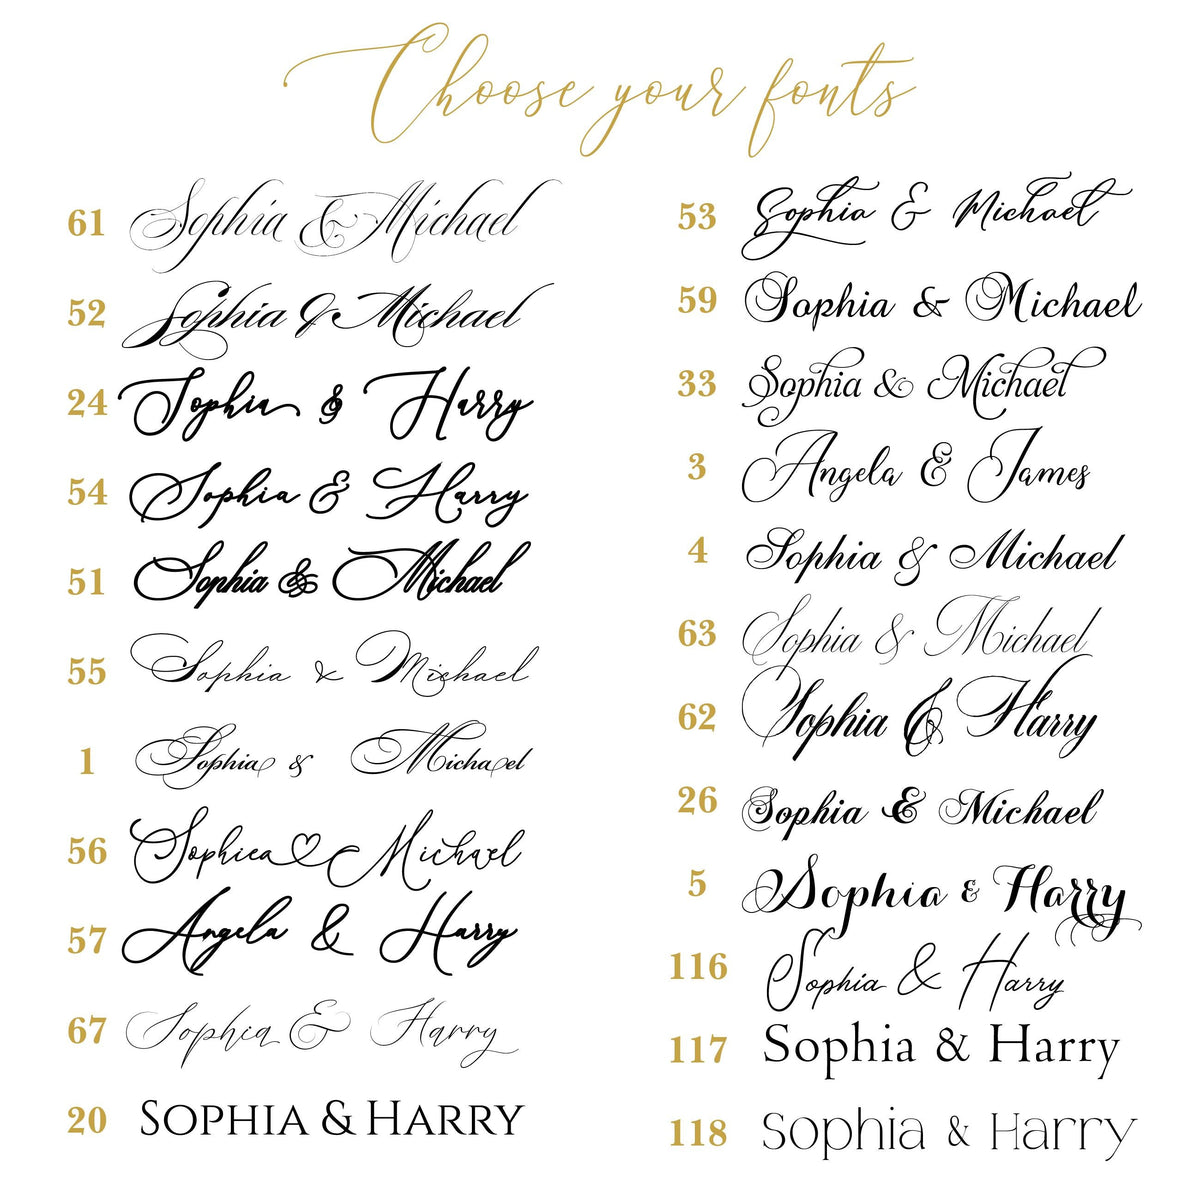 Choose your fonts
61 Sophia & Michael
52 Sophia & Michael
24 Sophia & Harry
54 Sophia & Harry
51 Sophia & Michael
55 Sophia & Michael
1 Sophia & Michael
56 Sophiea♡Michael
57 Angela & Harry
67 Sophia & Harry
20 SOPHIA & HARRY
53 Sophia & Michael
59 Sophia & Michael
33 Sophia & Michael
3 Angela & James
4 Sophia & Michael
63 Sophia & Michael
62 Sophia & Harry
26 Sophia & Michael
5 Sophia & Harry
116 Sophia & Harry
117 Sophia & Harry
118 Sophia & Harry